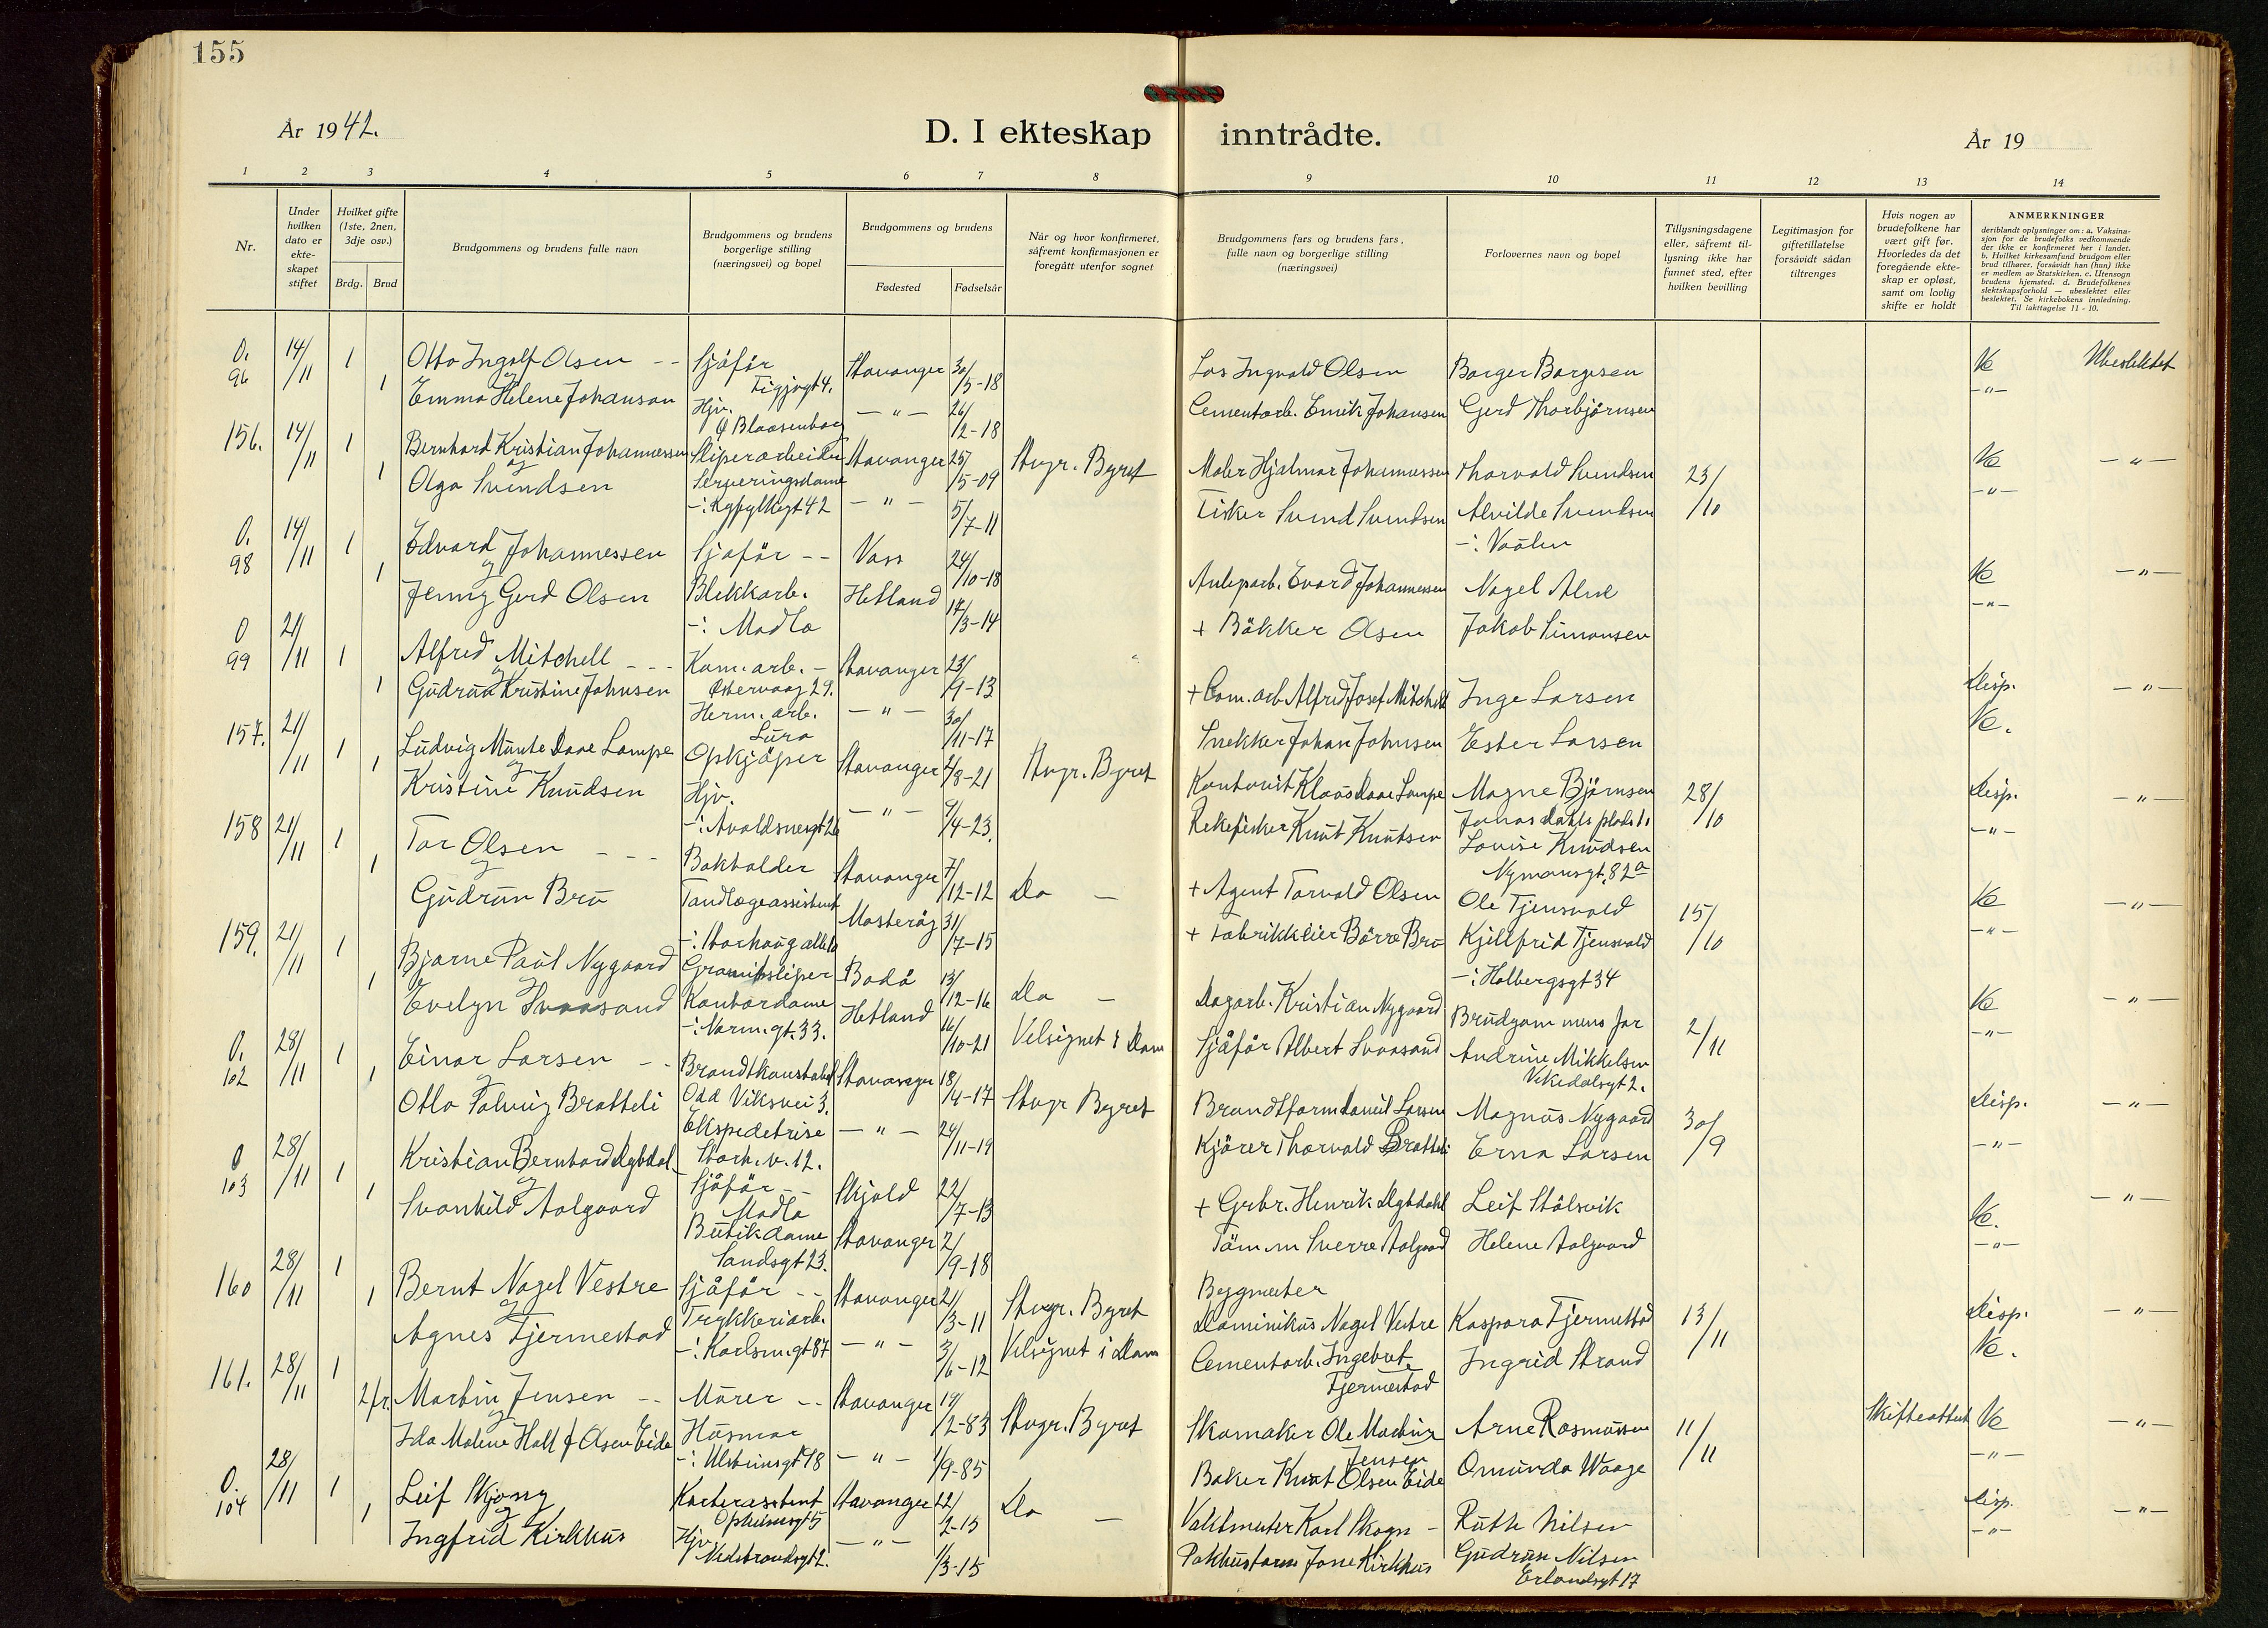 155
År 1942.
D. I ekteskap inntrådte.
År 19
1 2 3 4 5 6 7 8 9 10 11 12 13 14
Nr.
Under hvilken dato er ekteskapet stiftet
Hvilket gifte (1ste, 2nen, 3dje osv.)
Brdg. Brud
Brudgommens og brudens fulle navn
Brudgommens og brudens borgerlige stilling (næringsvei) og bopel
Brudgommens og brudens
Fødested Fødselsår
Når og hvor konfirmeret, såfremt konfirmasjonen er foregått utenfor sognet
Brudgommens fars og brudens fars, fulle navn og borgerlige stilling (næringsvei)
Forlovernes navn og bopel
Tillysningsdagene eller, såfremt tillysning ikke har funnet sted, efter hvilken bevilling
Legitimasjon for giftetillatelse forsåvidt sådan tiltrenges
Hvis nogen av brudefolkene har vært gift før. Hvorledes da det foregående ekteskap er opløst, samt om lovlig skifte er holdt
ANMERKNINGER
deriblandt oplysninger om: a. Vaksinasjon for de brudefolks vedkommende der ikke er konfirmeret her i landet. b. Hvilket kirkesamfund brudgom eller brud tilhører, forsåvidt han (hun) ikke er medlem av Statskirken. c. Utensogn brudens hjemsted. d. Brudefolkenes slektskapsforhold — ubeslektet eller beslektet. Se kirkebokens innledning. Til iakttagelse 11 - 10.
O. 96 14/11 1 Otto Ingolf Olsen -- Sjåfør Stavanger 30/5-18 Ingvald Olsen Borger Borgesen Ubeslektet
og 1 Emma Helene Johanson Hjv. — " — 26/2-18 Cementarb. Emik Johansen Gerd Thorbjørnsen — " —
156. 14/11 1 Bernhard Kristian Johannessen Sliperarbeider Stavanger 25/5-09 Stvgr. Byret Maler Hjalmar Johannessen Thorvald Svendsen 23/10 — " —
og 1 Olga Svendsen Serveringsdame — " — 5/7-11 Fisker Svend Svendsen Alvilde Svendsen — " —
O. 98 14/11 1 Edvard Johannessen Sjåfør -- Voss 24/10-18 Johannessen Nagel — " —
og 1 Jenny Gerd Olsen Blekkarb. Hetland 17/3-14 + Bökker Olsen Jakob Simonsen — " —
-: Madla
O 99 21/11 1 Alfred Mitchell --- Kom. arb. - Stavanger 23/9-13 + Com. arb Alfred Josef Mitchell Inge Larsen Disp. — " —
og 1 Gudrun Kristine Johnsen Østervaag 29. Herm. arb. Lura — " — 30/11-17 Snekker Johan Johnsen Ester Larsen
157. 21/11 1 Ludvig Munte Daae Lampe Opkjøper Stavanger 8-21 Stvgr. Byret Kontorist Klaus Daae Lampe Magne Bjørnsen 28/10 Disp. — " —
og 1 Kristine Knudsen Hjv. — " — 9/4-23. Rekefisker Knut Knutsen Jonas Dahls plads Louise Knudsen Nymansgt. 82a — " —
158 21/11 1 Tor Olsen --- Bokholder Stavanger 7/12-12 Do — + Agent Torvald Olsen Ole Tjensvold 15/10 — " —
og 1 Gudrun Brø Tandlægeassistent Mosterøy 31/7-15 + Fabrikkeier Børre Brø Kjellfrid Tjensvold — " —
-: Holbergsgt 34
159. 21/11 1 Bjarne Paul Nygaard Granitsliper Bodø 13/12-16 Do — Dagarb. Kristian Nygaard Brudgommens far 2/11 — " —
og 1 Evelyn Svaasand Kontordame Hetland 16/10-21 Velsignet i Dom Sjåfør Albert Svaasand Andrine Mikkelsen Vikedalsgt 2. — " —
-: Norm. gt. 33.
O. 102 28/11 1 Einar Larsen -- Brandkonstabel Stavanger 18/4-17 Stvgr Byret Brandform Daniel Larsen Magnus Nygaard 30/9 Disp. — " —
og 1 Otto Solveig Bratteli Odd Viksvei 3. Ekspedetrise — " — 24/11-19 Kjører Thorvald Bratteli Erna Larsen — " —
Storh. v. 12.
O 103 28/11 1 Kristian Bernhard Dybdal Sjåfør -- Madla Skjold 22/7-13 + Grbr. Henrik Dybdahl Leif Stålsvik — " —
og 1 Svanhild Aalgaard Butikdame Sandsgt 23. Stavanger 2/9-18 Töm. m Sverre Aalgaard Helene Aalgaard — " —
160 28/11 1 Bernt Nagel Vestre Sjåfør -- Stavanger 21/3-11 Stvgr. Byret Bygmester Dominikus Nagel Vestre Kaspara Fjermestad 13/11 Disp. — " —
og 1 Agnes Fjermestad Trykkeriarb. — " — 3/6-12 Velsignet i Dom Cementarb. Ingebret Fjermestad Ingrid Strand
-: Karlsm. gt 87
161. 28/11 1 Martin Jensen -- Mürer -- Stavanger 19/2-83 Stvgr. Byret Skomaker Ole Martin Jensen Arne Rasmussen 11/11 Skifteattest — " —
og 2 fr. Ida Malene Hall f Olsen Eide Husmor — " — 1/9-85 Baker Knut Olsen Eide Omunda Waage — " —
O. 104 28/11 1 Leif Skjong Stavanger 22/2-15 Do — Vaktmester Karl Ruth Nilsen Disp. — " —
og 1 Ingfrid Kirkhus Hjv. Nedstrandsgt 2. — " — 1/3-15 Kirkhus Gudrun Nilsen Erlandsgt 17 — " —